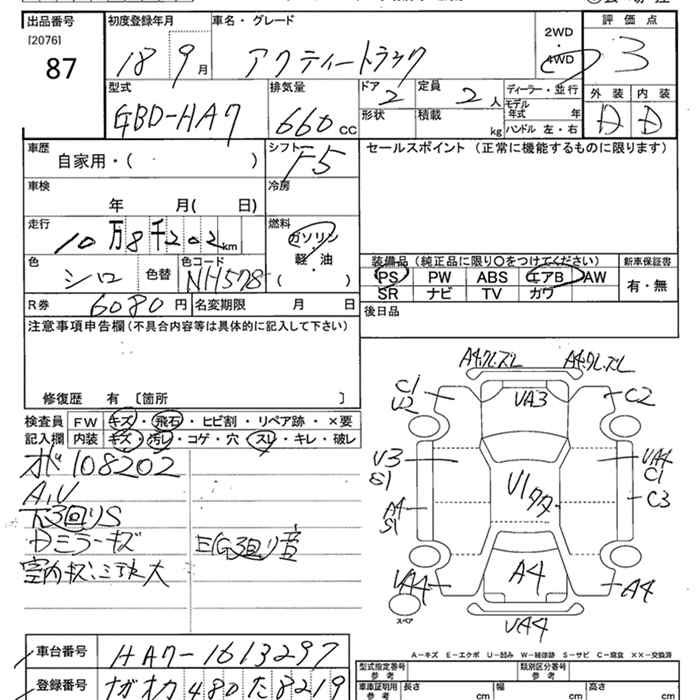 出品番号 初度登録年月 車名・グレード 評価点
[2076] 2WD
87 18 9月 アクティートラック 4WD 3
型式 排気量 ドア 定員 ディーラー・並行 外装 内装
GBD-HA7 660cc 2 2人 モデル年式 年 D
形状 積載 kg ハンドル 左・右
車歴 シフト セールスポイント (正常に機能するものに限ります)
自家用・( ) F5
車検 冷房
年 月( 日)
走行 燃料
10万8千202km ガソリン・軽油
色 色コード 装備品(純正品に限り○をつけてください) 新車保証書
シロ 色替 NH578 ( ) PS PW ABS エアB AW 有・無
SR ナビ TV カワ
R券 6080円 名変期限 月 日 後日品
注意事項申告欄(不具合内容等は具体的に記入して下さい)
修復歴 有 〔箇所 〕
検査員 FW キズ・飛石・ヒビ割・リペア跡・×要
記入欄 内装 キズ・汚レ・コゲ・穴・スレ・キレ・破レ
108202
A,U
下3回りS
Dミラーキズ E/G3回り音
室内キズ、ミ 大
車台番号 HA7-1613297
登録番号 ナガオカ 480 た 8219
A4クレズレ A4クレズレ
C1 U2 UA3 C2
U3 S1 UA4 C1
U1ワタ C3
A4 S1
UA4 A4 A4
スペア UA4
A-キズ E-エクボ U-凹み W-補修跡 S-サビ C-腐食 XX-交換済
型式指定番号 参考 類別区分番号 参考
車庫証明用 参考 長さ cm 幅 cm 高さ cm